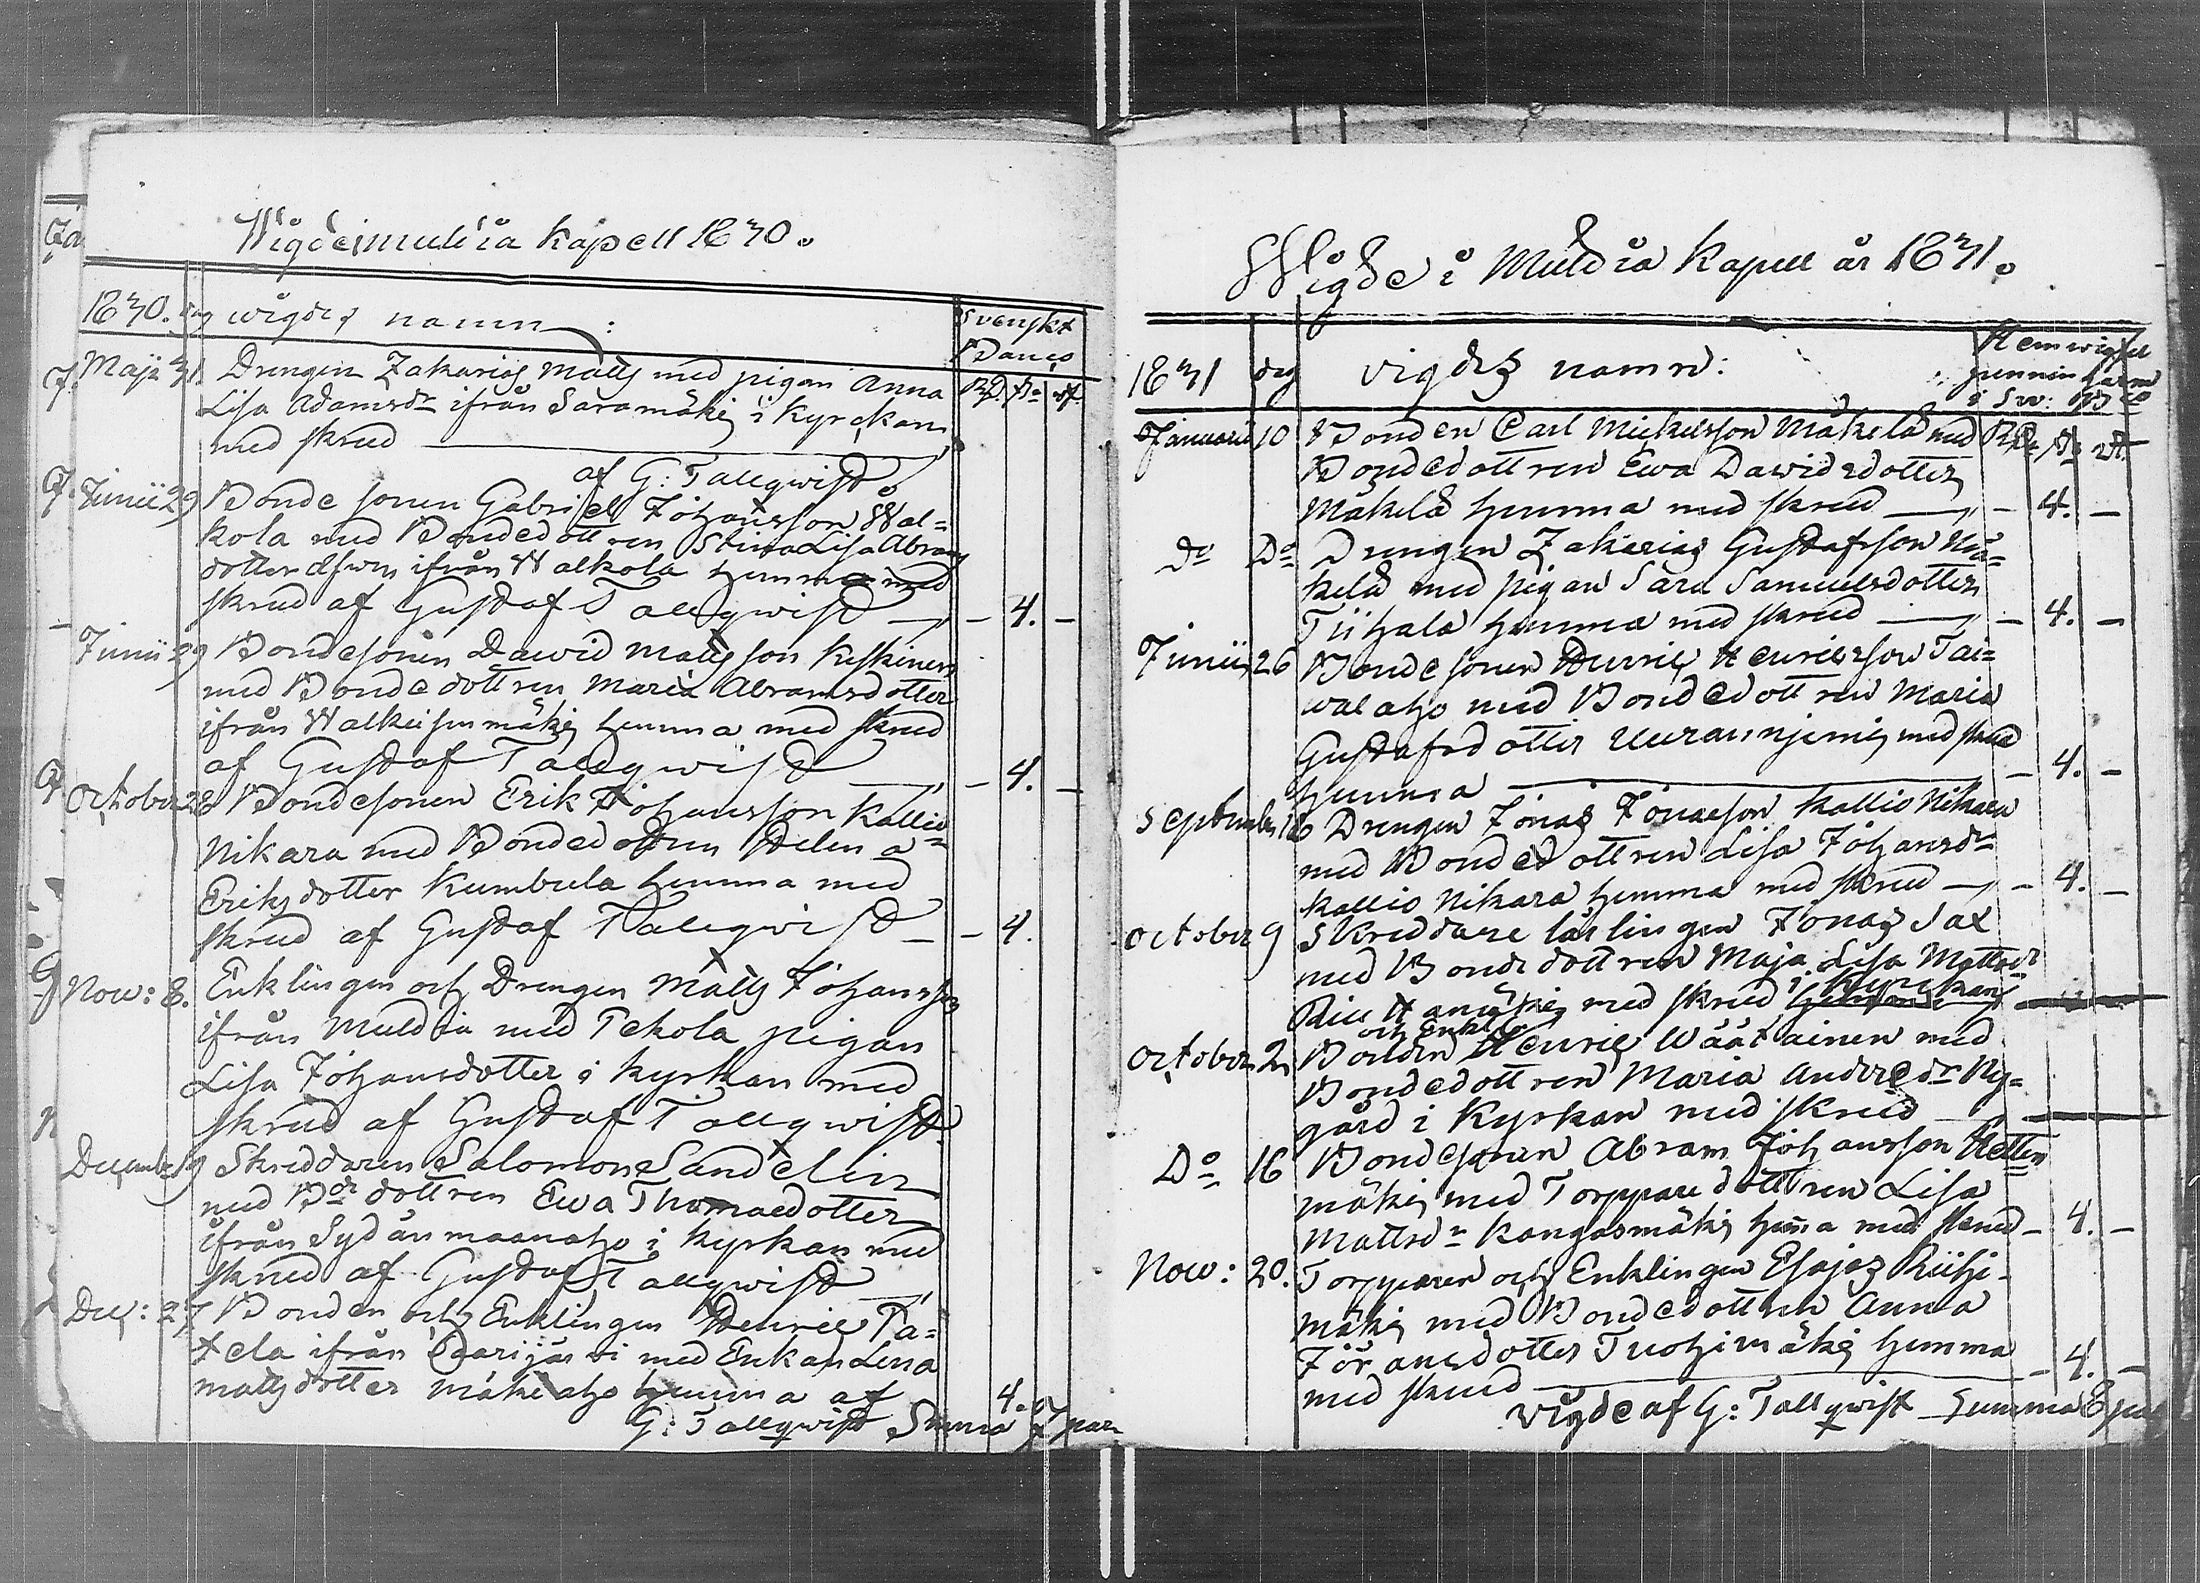 Wigde i Muldia Kapell 1830.
1830. dag wigdes namn:
Svenskt
Banco
Rd. s. rst.
Maji 31. Drengen Zakarias Matts med pigan Anna
Lisa Adamsdr ifrån Saramäki i Kyrckan
med skrud
af G: Tallqwist
Junii 29 Bonde sonen Gabriel Johansson Wal=
kola med Bondedottren Stina Lisa Abrams
dotter ifrån Walkola hemma med
skrud af Gustaf Tallqwist - 4. -
Junii 29 Bondesonen Dawid Mattsson Keskinen
med Bondedottren Maria Abramsdotter
ifrån Walkeisenmäki hemma med skrud
af Gustaf Tallqwist - 4. -
October 28 Bondesonen Erik Johansson Kallio
Nikara med Bondedottren Helena
Eriksdotter Kumbula hemma med
skrud af Gustaf Tallqwist - 4.
Now: 8. Enklingen och Drengen Matts Johansson
ifrån Muldia med Tekola pigan
Lisa Johansdotter i kyrkan med
skrud af Gustaf Tallqwist
December 19 Skreddaren Salomon Sandelin
med Bde dottren Ewa Thomaedotter
ifrån Sydänmaanaho i kyrkan med
skrud af Gustaf Tallqwist
Dec: 27 Bonden och Enklingen Henric Ta=
tela ifrån med Enkan Lena
Mattsdotter Mäkiaho hemma af 4.
G: Tallqwist Summa 7 par
Wigde i Muldia Kapell år 1831.
1831 dag vigdes namn:
Hemwigsel
penningarne
i Sw: Bco
Januarii 10 Bonden Carl Mickelsson Mäkelä med Rd. s. rst.
Bondedottren Ewa Dawidsdotter
Mäkelä hemma med skrud - 4. -
Do Do Drengen Zakarias Gustafsson Mä=
kelä med pigan Sara Samuelsdotter
Tiihala hemma med skrud - 4. -
Junii 26 Bondesonen Henric Henricsson Tai=
walaho med Bondedottren Maria
Gustafsdotter med skrud
hemma - 4. -
September 18 Drengen Jonas Jonasson Kallio Nikara
med Bondedottren Lisa Johansdr
Kallio Nikara hemma med skrud - 4. -
October 9 Skreddare lärlingen Jonas Sal
med Bonde dottren Maja Lisa Mattsdr
med skrud i kyrckan
och Enkl
October 2 Bonden Henric Wäätainen med
Bondedottren Maria Andersdr Ny=
gård i Kyrkan med skrud
Do 16 Bondesonen Abram Johansson Hetten
mäki med Torppare dottren Lisa
Mattsdr Kangasmäki hemma med skrud - 4. -
Now: 20. Torpparen och Enklingen Esajas Riihi-
mäki med Bondedottren Anna
Jöransdotter Tuohimäki hemma
med skrud - 4. -
vigde af G: Tallqwist Summa 8 par